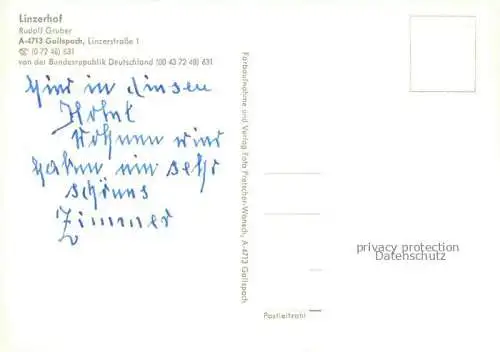 Linzerhof
Rudolf Gruber
A-4713 Gallspach, Linzerstraße 1
☎ (0 72 48) 631
von der Bundesrepublik Deutschland (00 43 72 48) 631
Hier in diesen
Hotel
Wohnen wir
haben ein sehr
schönes
Zimmer
Farbaufnahme und Verlag Foto Pretscher-Wansch, A-4713 Gallspach
privacy protection
Datenschutz
Postleitzahl